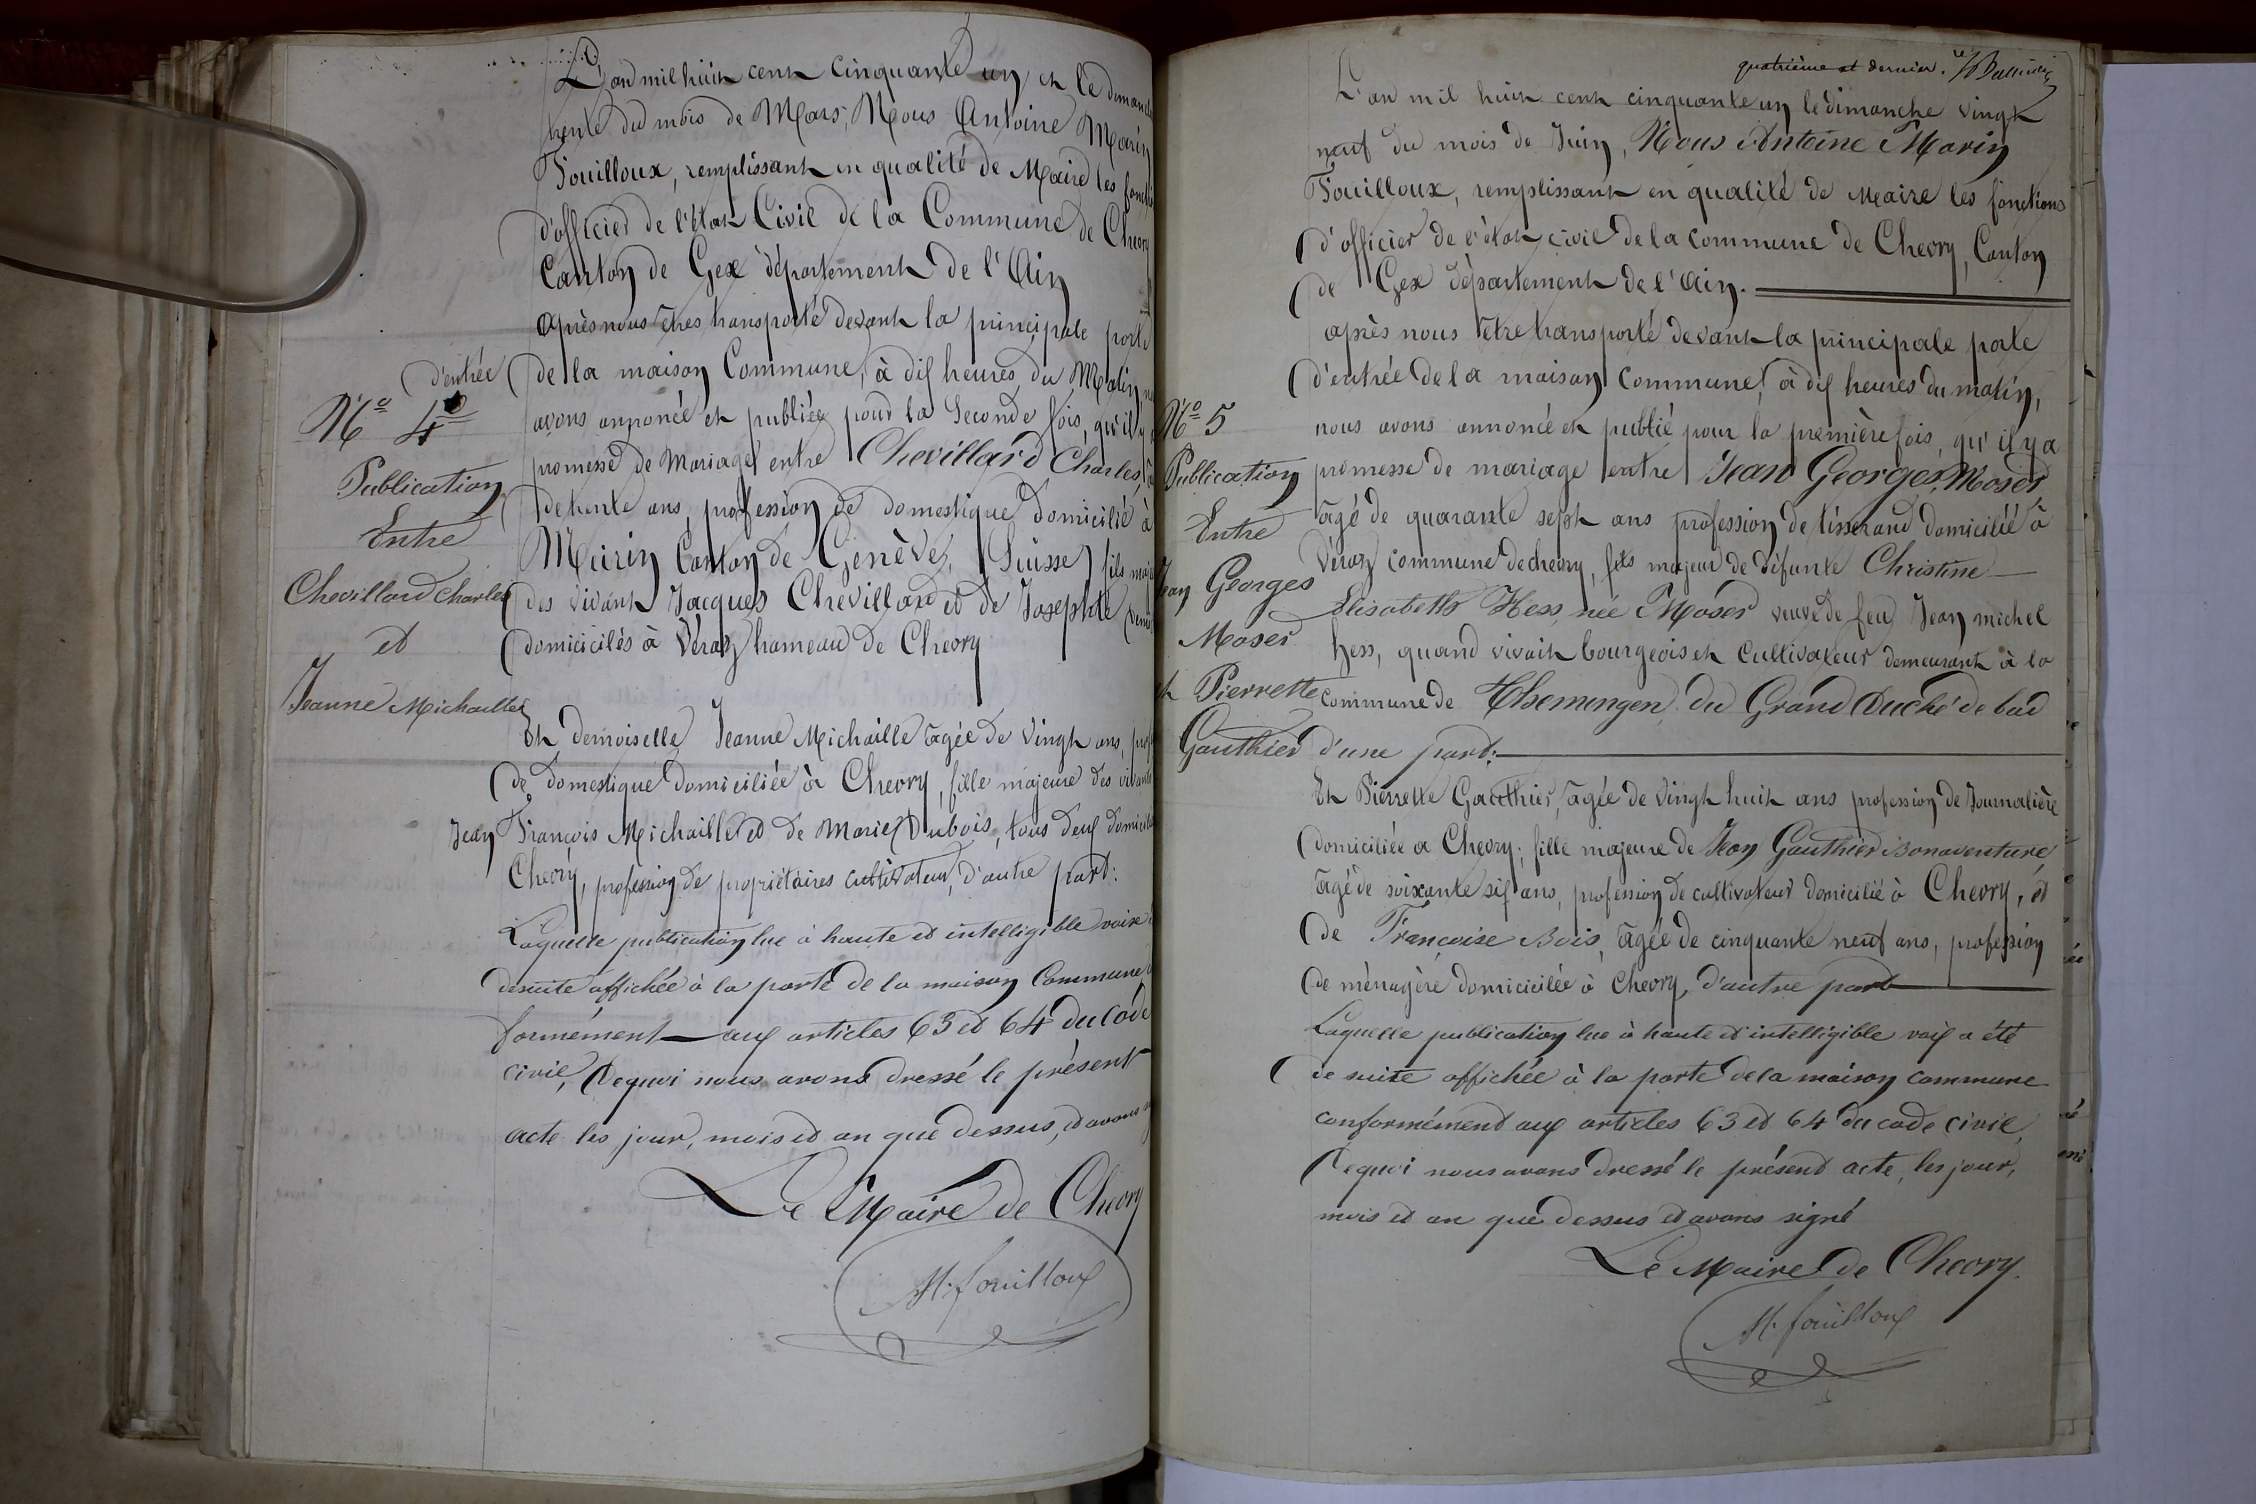 L'an mil huit cent cinquante un et le dimanche
trente du mois de Mars, Nous Antoine Marin
Fouilloux, remplissant en qualité de Maire les fonct
d'officier de l'état Civil de la Commune de Chevry
Canton de Gex département de l'Ain
après nous êtres transporté devant la principale porte
d'entrée de la maison Commune, à dix heures du Matin
avons annoncé et publiée pour la Seconde fois, qu'il y
promesse de Mariage entre Chevillard Charles
de trente ans, profession de domestique domicilié à
Meirin Canton de Genève, (Suisse) fils
des vivant Jacques Chevillard et de Josephte
domiciciliés à Véraz hameau de Chevry
Et demoiselle Jeanne Michaille agée de vingt ans,
de domestique domiciliée à Chevry, fille majeure des vivants
Jean François Michaille et de Marie Dubois, tous deux
Chevry, profession de propriétaires cultivateur, d'autre part:
Laquelle publication lue à haute et intelligible voixe
desuite affichée à la porte de la maison Commune
formément aux articles 63 et 64 du Code
civil, Dequoi nous avons dressé le présent
acte les jour, mois et an que dessus, et avons
Le Maire de Chevry
M. fouilloux
No 4
Publication
Entre
Chevillard Charles
et
Jeanne Michaille
quatrième et dernier.
L'an mil huit cent cinquante un le dimanche vingt
neuf du mois de Juin, Nous Antoine Marin
Fouilloux, remplissant en qualité de Maire les fonctions
d'officier de l'état civil de la commune de Chevry, Canton
de Gex département de l'Ain.
après nous être transporté devant la principale porte
d'entrée de la maison Commune, à dix heures du matin,
nous avons annoncé et publié pour la première fois, qu'il y a
promesse de mariage entre Jean Georges Moser
agé de quarante sept ans profession de tisserand domiciliié à
Véraz commune de chevry, fils majeur de défunte Christine
Elisabeth Hess, née Moser veuve de feu Jean michel
hess, quand vivait bourgeois et Cultivateur demeurant à la
commune de Themingen du Grand Duché de bad
d'une part:
Et Pierrette Gauthier, agée de vingt huit ans profession de Journalière
domiciliée a Chevry; fille majeure de Jean Gauthier Bonaventure
agé de soixante six ans, profession de cultivateur domicilié à Chevry, et
de Françoise Bois, agée de cinquante neuf ans, profession
de ménagère domiciciliée à Chevry, d'autre part
Laquelle publication lue à haute et intelligible voix a été
de suite affichée à la porte de la maison commune
conformément aux articles 63 et 64 du code civil,
Dequoi nous avons dressé le présent acte, les jour,
mois et an que dessus et avons signé
Le Maire de Chevry.
M. fouilloux
No 5
Publication
Entre
Jean Georges
Moser
et Pierrette
Gauthier